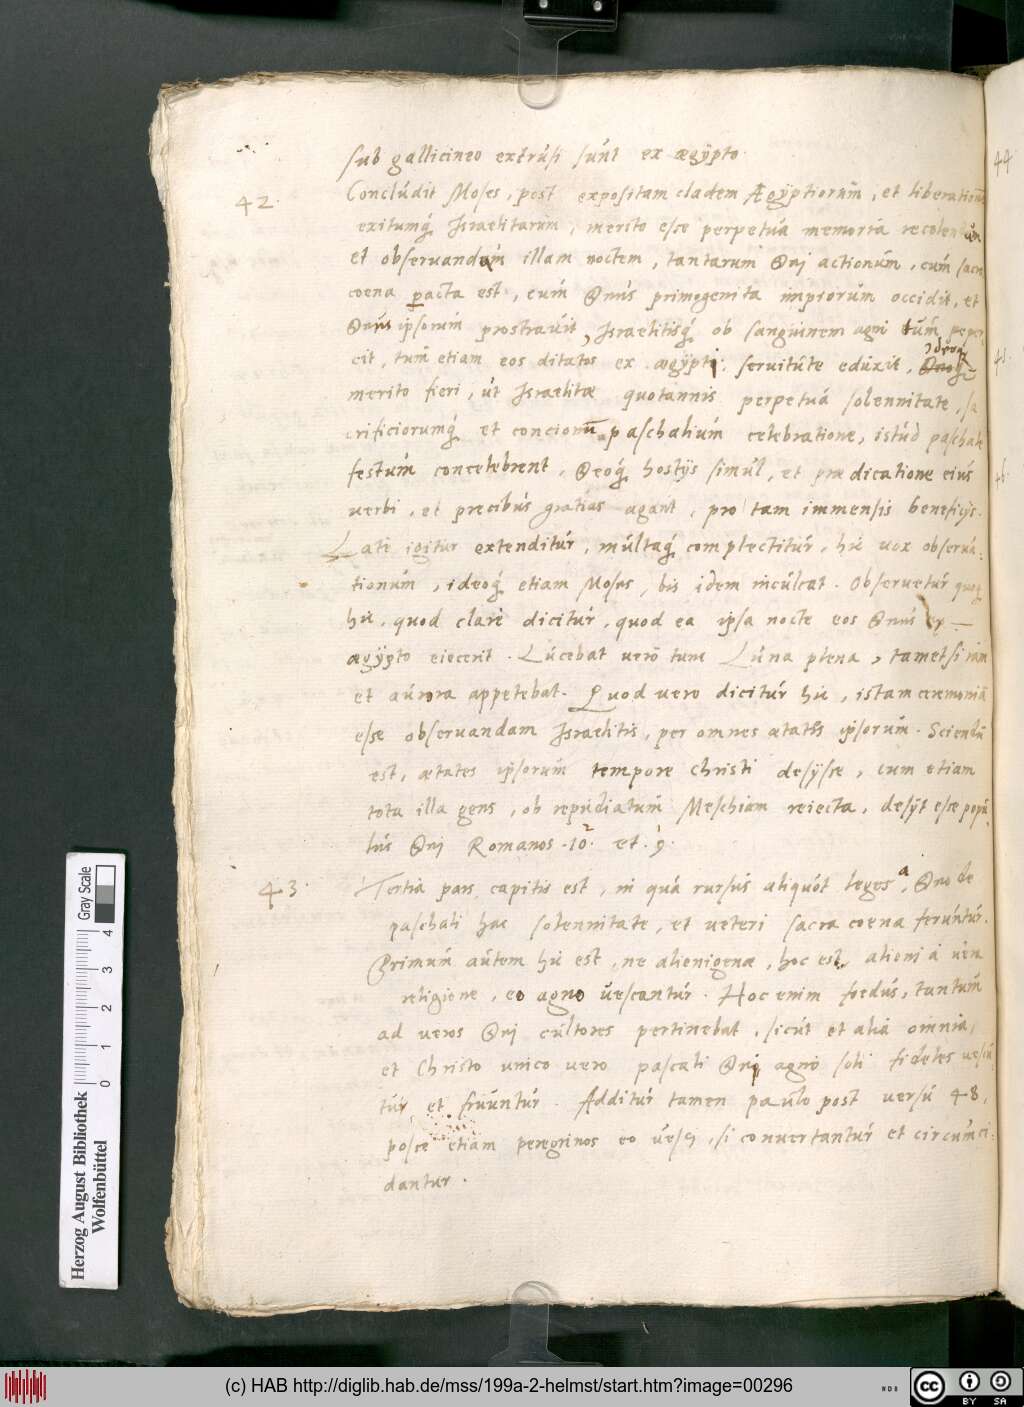 sub gallicineo extrusi sunt ex ægypto
42. Concludit Moses, post expositam cladem Ægyptiorum, et liberationem
exitumq́ Israelitarum, merito esse perpetua memoria recolendum
et obseruandam illam noctem, tantarum Dni actionum, cum sacra
coena pacta est, cum Dnus primogenita impiorum occidit, et
Deus ipsorum prostrauit, Israelitisq́ ob sanguinem agni tum peper
cit, tum etiam eos ditatos ex ægypti seruitute eduxit, Ideoq́
merito fieri, ut Israelitæ quotannis perpetua solennitate, sa
crificiorumq́ et concionum paschalium celebratione, istud paschale
festum concelebrent, Deoq́ hostijs simul, et prædicatione eius
uerbi, et precibus gratias agant, pro tam immensis beneficijs.
Late igitur extenditur, multaq́ complectitur, hic uox obserua:
tionum, ideoq́ etiam Moses, bis idem inculcat. Obseruetur quoq́
hic, quod clare dicitur, quod ea ipsa nocte eos Dnus ex
ægypto eiecerit. Lucebat uero tum Luna plena, tametsi iam
et aurora appetebat. Quod uero dicitur hic, istam ceremoniam
esse obseruandam Israelitis, per omnes ætates ipsorum. Sciendum
est, ætates ipsorum tempore Christi desijsse, cum etiam
tota illa gens, ob repudiatum Meschiam reiecta, desijt esse popu
lus Dnj Romanos .10. et .9.
43. Tertia pars capitis est, in qua rursus aliquot leges a Dno de
paschali hac solennitate, et ueteri sacra coena feruntur.
Primum autem hic est, ne alienigenæ, hoc est, alieni a uera
religione, eo agno uescantur. Hoc enim foedus, tantum
ad ueros Dnj cultores pertinebat, sicut et alia omnia,
et Christo unico uero pascali Dnj agno soli fideles uescun
tur et fruuntur. Additur tamen paulo post uersu 48,
posse etiam peregrinos eo uesci, si conuertantur et circumci:
dantur.
44
Herzog August Bibliothek
Wolfenbüttel
0 1 2 3 4
Gray Scale
(c) HAB http://diglib.hab.de/mss/199a-2-helmst/start.htm?image=00296
cc BY SA